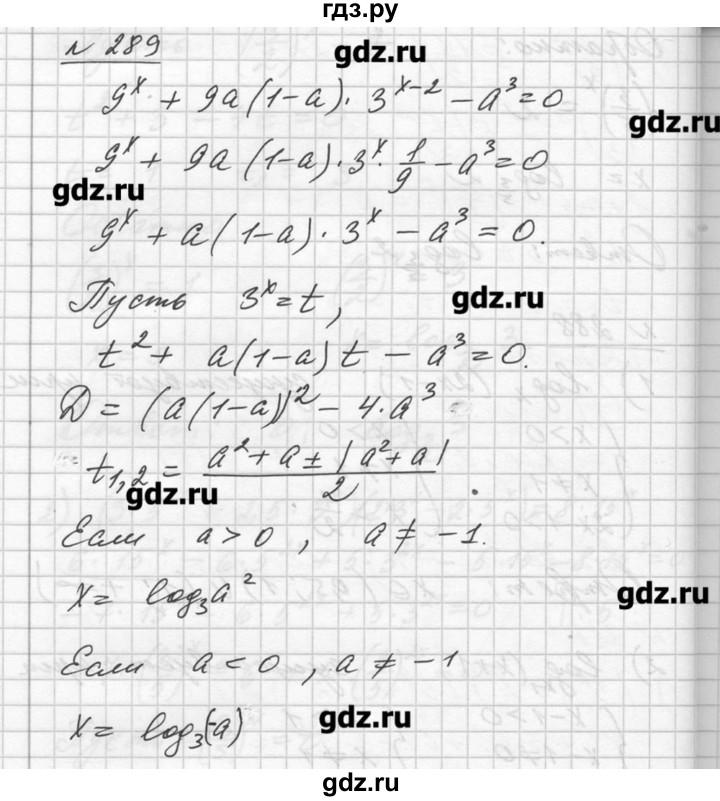 гдз.ру
№ 289
gdz.ru
9^x + 9a(1-a)·3^{x-2} - a^3 = 0
gdz.ru
9^x + 9a(1-a)·3^x·1/9 - a^3 = 0
gdz.ru
9^x + a(1-a)·3^x - a^3 = 0.
Пусть 3^x = t,
gdz.ru
t^2 + a(1-a)t - a^3 = 0.
Д = (a(1-a))^2 - 4·a^3
t_{1,2} = (a^2 + a ± |a^2 + a|)/2.
gdz.ru
Если a > 0, a ≠ -1.
x = log_3 a^2
gdz.ru
Если a < 0, a ≠ -1
x = log_3(-a)
gdz.ru
gdz.ru